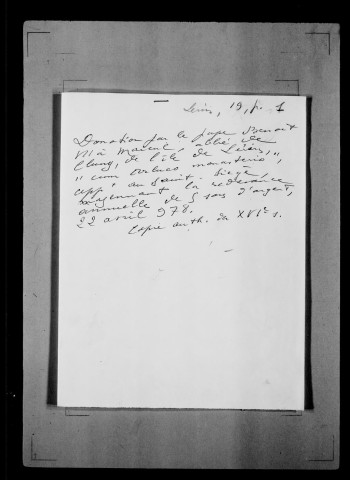 Lérins, 19, p. 1
Donation par le pape Benoît
VII à Maïeul, abbé de
Cluny, de l'île de Lérins,
"cum Arluco monasterio",
appt au Saint-Siège,
moyennant la redevance
annuelle de 5 sous d'argent,
22 avril 978.
Copie auth. du XVIe s.